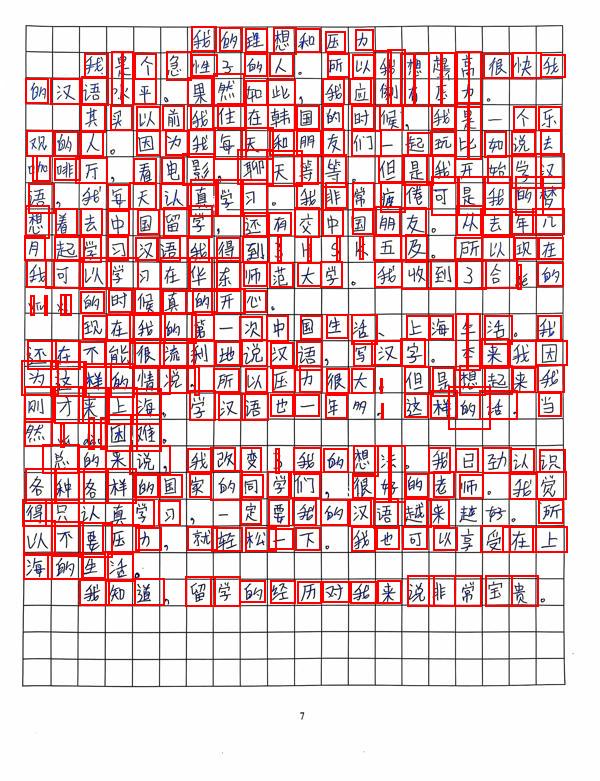 我的理想和压力
我是个急性子的人。所以我想提高很快我
的汉语水平。果然如此，我应刻有压力。
其实以前我住在韩国的时候，我是一个乐
观的人。因为我每天和朋友们一起玩比如说去
咖啡厅，看电影，聊天等等。但是我开始学汉
语，我每天认真学习。我非常疲倦可是我的梦
想着去中国留学，还有交中国朋友。从去年几
月起学习汉语我得到了HSK五及。所以现在
我可以学习在华东师范大学。我收到了合格的
的时候真的开心。
现在我的第一次中国生活、上海生活。我
还在不能很流利地说汉语，写汉字。本来我因
为这样的情况。所以压力很大，但是想起来我
刚才来上海，学汉语也一年多，这样的话，当
然困难。
总的来说，我改变了我的想法。我已经认识
各种各样的国家的同学们，很好的老师。我觉
得只认真学习，一定要我的汉语越来越好。所
以不要压力，就轻松一下。我也可以享受在上
海的生活。
我知道，留学的经历对我来说非常宝贵。
7